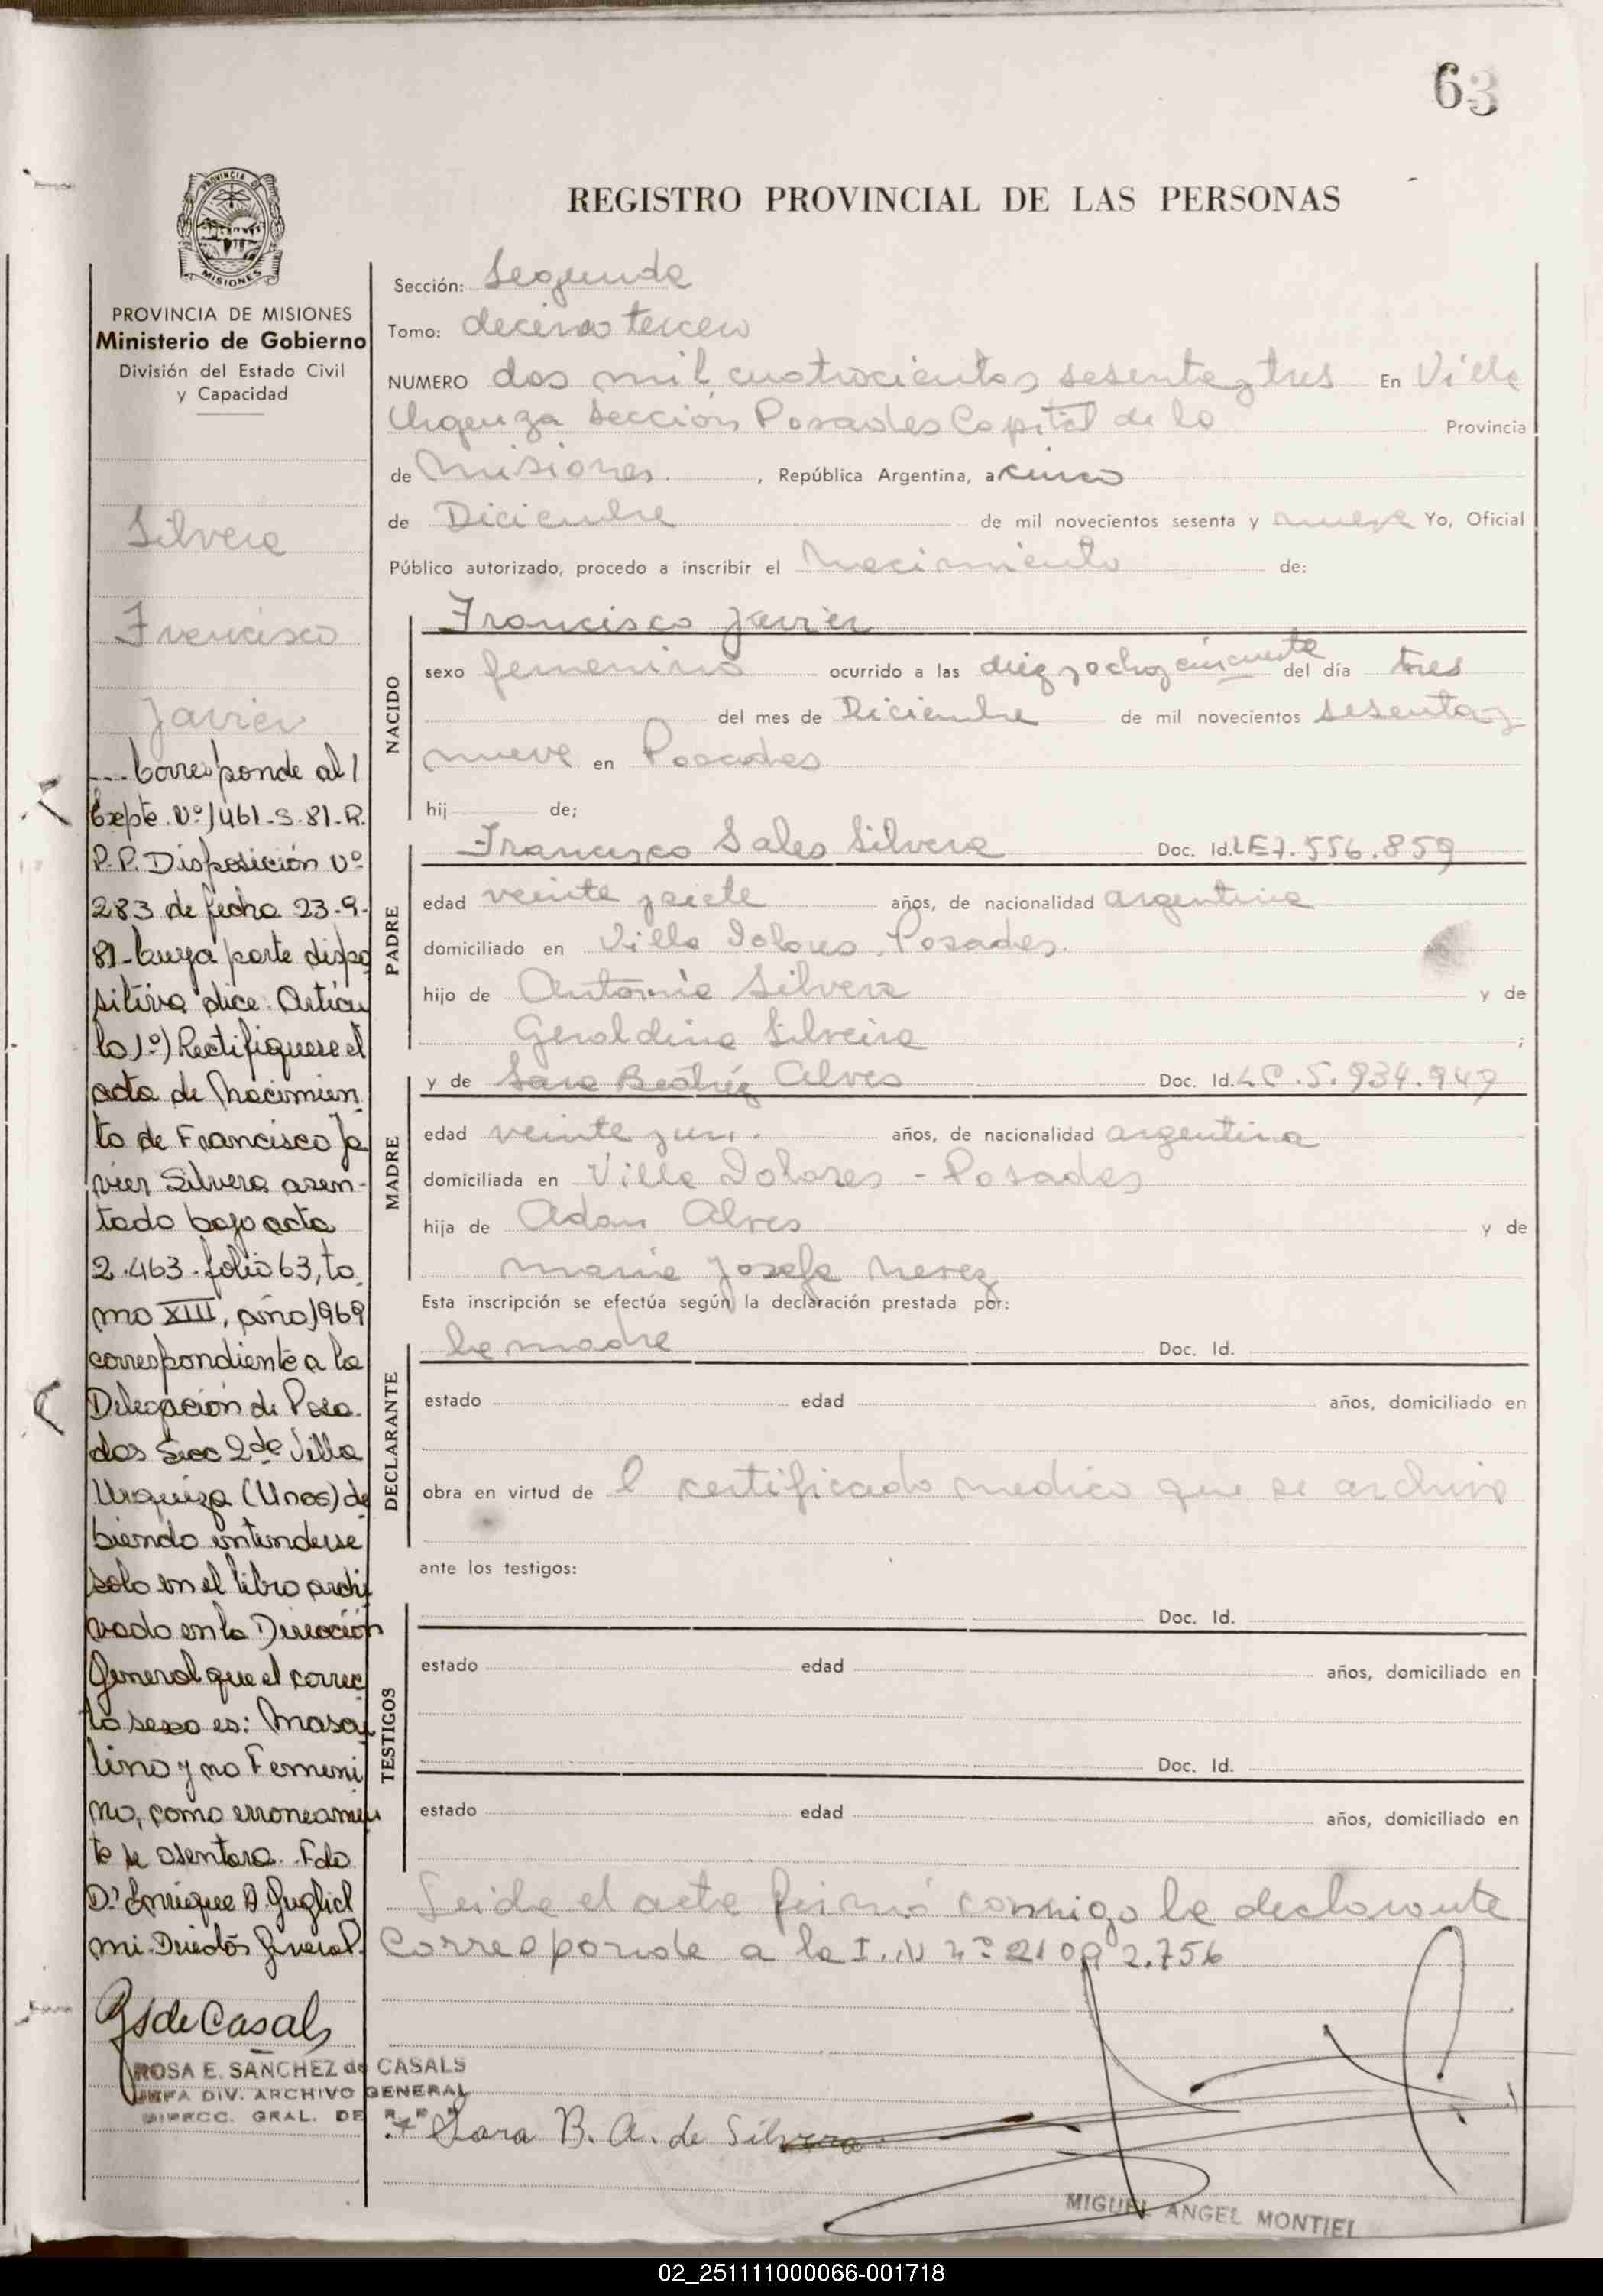 63
REGISTRO PROVINCIAL DE LAS PERSONAS
PROVINCIA DE
MISIONES
PROVINCIA DE MISIONES
Ministerio de Gobierno
División del Estado Civil
y Capacidad
Silvera
Francisco
Javier
... Corresponde al
Expte. Nº 1461-S-81-R.
P.P. Disposición Nº
283 de fecha 23-9-
81-Cuya parte dispo
sitiva dice: Artícu
lo 1º) Rectifiquese el
acta de Nacimien
to de Francisco Ja
vier Silvera asen-
tado bajo acta
2.463. folio 63, to
mo XIII, año 1969
correspondiente a la
Delegación de Posa
das Secc 2da Villa
Urquiza (Unos) de
biendo entenderse
solo en el libro archi
vado en la Dirección
General que el correc
to sexo es: Mascu
lino y no Femeni
no, como erroneamen
te se asentara. Fdo
Dr. Enrique A. Gugliel
mi. Director General.
RSdeCasals
ROSA E. SANCHEZ de CASALS
JEFA DIV. ARCHIVO GENERAL
DIRECC. GRAL. DE R. P. P.
Sección: Segunda
Tomo: decimo tercero
NUMERO dos mil cuatrocientos sesenta y tres En Villa
Urquiza Sección Posadas Capital de la Provincia
de Misiones , República Argentina, a cinco
de Diciembre de mil novecientos sesenta y nueve Yo, Oficial
Público autorizado, procedo a inscribir el Nacimiento de:
NACIDO
Francisco Javier
sexo femenino ocurrido a las diez y ocho y cincuenta del día tres
del mes de Diciembre de mil novecientos sesenta y
nueve en Posadas
hij de;
PADRE
Francisco Sales Silvera Doc. Id. LE 7.556.859
edad veinte y siete años, de nacionalidad argentina
domiciliado en Villa Dolores. Posadas.
hijo de Antonio Silvera y de
Geraldina Silveira ;
MADRE
y de Sara Beatríz Alves Doc. Id. L C. 5.934.949
edad veinte y un. años, de nacionalidad argentina
domiciliada en Villa Dolores - Posadas
hija de Adan Alves y de
María Josefa Nerez
Esta inscripción se efectúa según la declaración prestada por:
DECLARANTE
la madre Doc. Id.
estado edad años, domiciliado en
obra en virtud de l certificado medico que se archiva
ante los testigos:
TESTIGOS
Doc. Id.
estado edad años, domiciliado en
Doc. Id.
estado edad años, domiciliado en
Leida el acta firmó conmigo la declarante
Corresponde a la I. N nº 21 092.756
Sara B. A. de Silvera
MIGUEL ANGEL MONTIEL
02_251111000066-001718